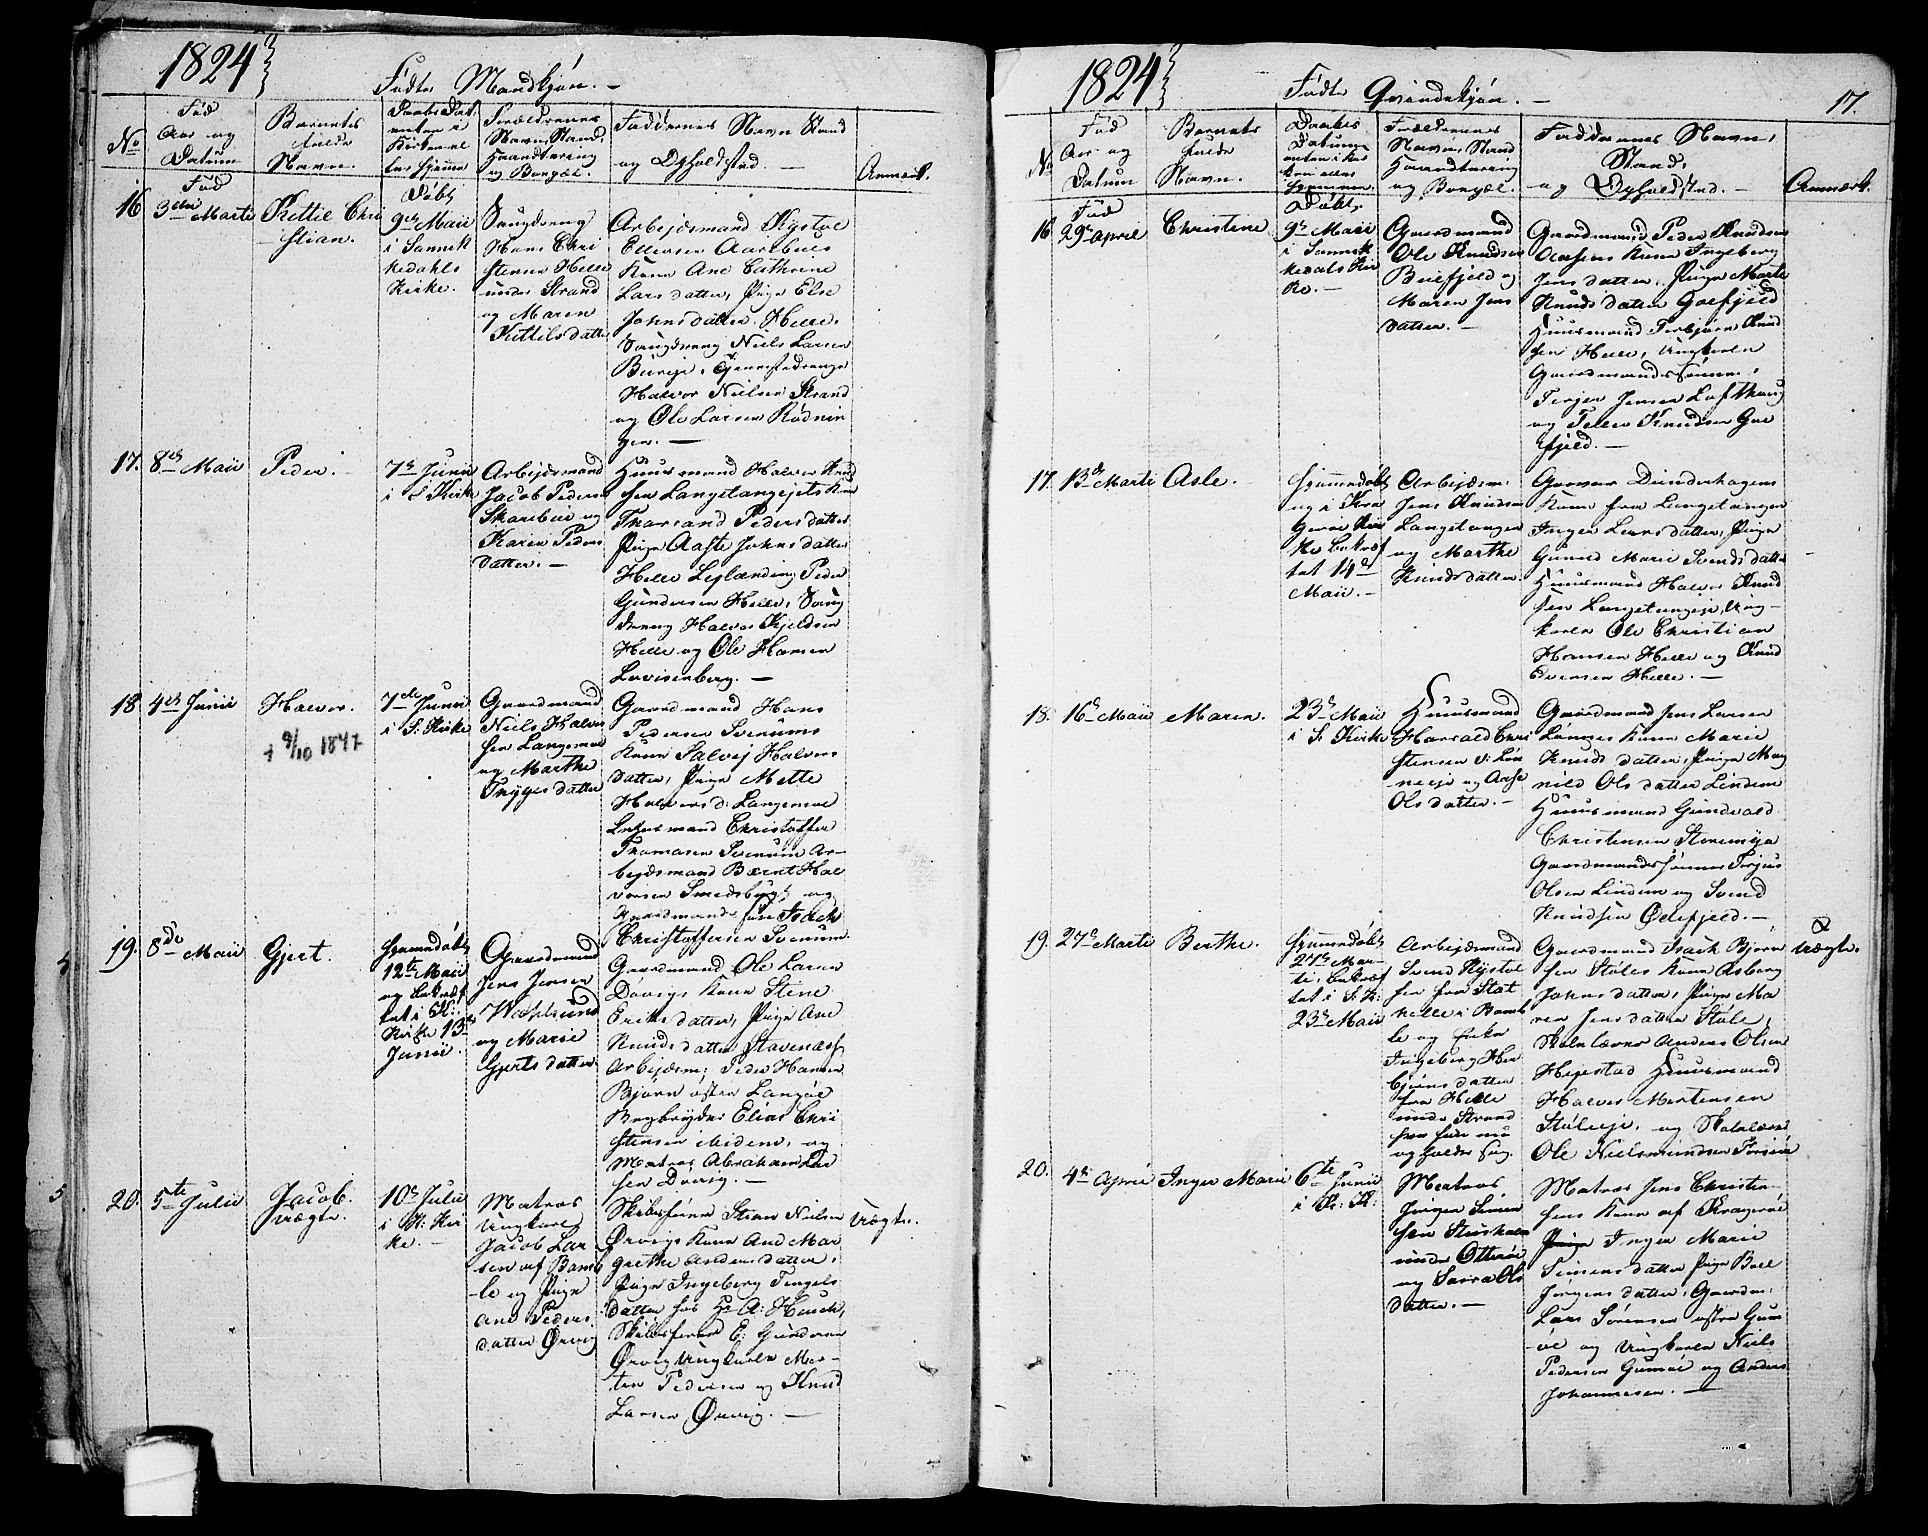 1824
Fødte Mandkjøn. —
No
Fød
Aar og
Datum
Barnets
fulde
Navn.
Daabs Dat
Forældrenes
Navn, Stand,
Haandtering
og Boepæl.
Faddernes Navn Stand
og Opholdsted. —
Anmærk.
Fød
16 3die Marti
Kittil Chri
stian.
Døbt
9de Maii
i Sannik
kedahls
Kirke.
Hans Chri
stensen Helle
under Strand
og Maren
Kittilsdatter
Arbejdsmand Rystol
Ellevsen Aarebues
Kone Ane Cathrine
Larsdatter, Pige Else
Johnsdatter Helle,
Niels Larsen
Halvor Nielsen Strand
og Ole Larsen Rødnin
gen. —
17. 8de Maii
Peder. —
7de Junii
i S Kirke
Arbejdsmand
Jacob Peders
Skarebue og
Karen Peders
datter. —
Huusmand Halvor Knud
sen Langetangejets Kone
Tharaand Pedersdatter
Pige Aaste Johnsdatter
Helle Leylænding Peder
Gundersen Helle, Ung
dreng Halvor Kjeldsen
Helle og Ole Hansen
Lovisenberg. —
18 4de Junii
Halvor.
† 9/10 1847
7de Junii
i S: Kirke
Gaardmand
Niels Halvor
sen Langemoe
og Marthe
Trygesdatter
Gaardmand Hans
Pedersen Svenums
Kone Salvej Halvors
datter, Pige Mette
Halvorsd: Langemoe
Lehnsmand Christoffer
Thomasen Svenum Ar-
bejdsmand Bærnt Hal
vorsen Smedsbugt og
Gaardmands søn Isach
Christoffersen Svenum
19. 8de Maii
Gjert.
Hjemmedøbt
12te Maii
og bekræf
tet i K:
Kirke 13de
Junii.
Gaardmand
Jens Jensen
Wahlsund
og Marie
Gjertsdatter
Gaardmand Ole Larsen
Dørvigs Kone Stene
Eriksdatter, Pige Ane
Knudsdatter Stavenæss
Arbejdsm: Peder Hansen
Bjørn østre Langøe
Bogbinder Elias Chri
stensen ibidem, og
Matros Abraham Lar
sen Dørvig. —
20. 5te Julii
Jacob.
Uægte.
10de Julii
i K: Kir
ke. —
Matros
Ungkarl
Jacob Lar
sen af Bamb
le og Pige
Ane Peders
datter Ørvig
Skibsfører Stian Nielsen
Ørvigs Kone Ane Mar
grethe Andersdatter,
Pige Ingeborg Tengels
datter hos Hr A: Heuch,
Skibsfører E: Gundersen
Ørvig Ungkarle Mor-
ten Pedersen og Knud
Larsen Ørvig. —
Uægte.
4
5
1824
Fødte Qvindekjøn. —
17.
No
Fød
Aar og
Datum
Barnets
fulde
Navn.
Daabs
Datum
enten i Kir
ken eller
hjemme.
Forældrenes
Navn, Stand
Haandtering
og Boepæl.
Faddernes Navn,
Stand,
og Opholdsted. —
Anmærk.
Fød
16 29de April
Christine
Døbt
9de Maii
i Sannik
kedals Kir
ke. —
Gaardmand
Ole Knudsen
Buefjeld og
Maren Jens
datter. —
Gaardmand Peder Knudsen
Aasens Kone Ingeborg
Jensdatter, Pige Marte
Knudsdatter Goefjeld
Huusmand Torbjørn Knud
sen Helle, Ungkarle
Gaardmandssønner,
Terjer Jensen Lofthaug
og Tellev Knudsen Goe
fjeld. —
17. 13de Marti
Asle. —
Hjemmedøbt
og i Kra
gerøe Kir
ke bekræf
tet 14de
Maii. —
Arbejdsm:
Jens Knudsen
Langetangen
og Marthe
Knudsdatter.
Gunnar Dunderhagens
Kone fra Langetangen
Inger Larsdatter, Pige
Gunild Marie Svendsdatter
Huusmand Halvor Knud
sen Langetangeje, Ung-
karle Ole Christian
Hansen Helle og Knud
Evensen Helle. —
18. 16de Maii
Maren.
23de Maii
i S: Kirke
Huusmand
Harrald Chri
stensen v: Løn
neeje og Aase
Olsdatter. —
Gaardmand Jens Larsen
Lønnes Kone Marie
Knudsdatter, Pige Mag
nild Olsdatter Lindem
Huusmand Gundvald
Christensen Storemyr
Gaardmandssønner Terjus
Olsen Lindem og Svend
Knudsen Ødefjeld. —
19. 27de Marti
Berthe.
Hjemmedøbt
27de Mar-
ti, bekræf
tet i S: K:
23de Maii
Arbejdsmand
Svend Rystol
sen fra Stat
helle i Bamb
le og Enke
Ingeborg Her
bjørnsdatter
fra Helle
under Strand
Gaardmand Isach Bjørn
sen Støles Kone Asberg
Johnsdatter, Pige Ma
ren Jensdatter Støle,
Skolelærer Anders Olsen
Hegestad Huusmand
Halvor Mortensen
Støleeje, og Skolelærer
Ole Nielsmundsen Farsjøe
Uægte.
20. 4de April
Inger Marie
6te Junii
i K: K:
Matros
Jørgen Simen
sen Stuesholm
under Otterøe
og Sarra Ols
datter. —
Matros Jens Christen-
sens Kone af Kragerøe
Pige Inger Marie
Simensdatter Pige Boel
Jørgensdatter, Gaardm:
Lars Sørensen østre Gum
øe og Ungkarle Niels
Pedersen Gumøe og Anders
Johannesen. —